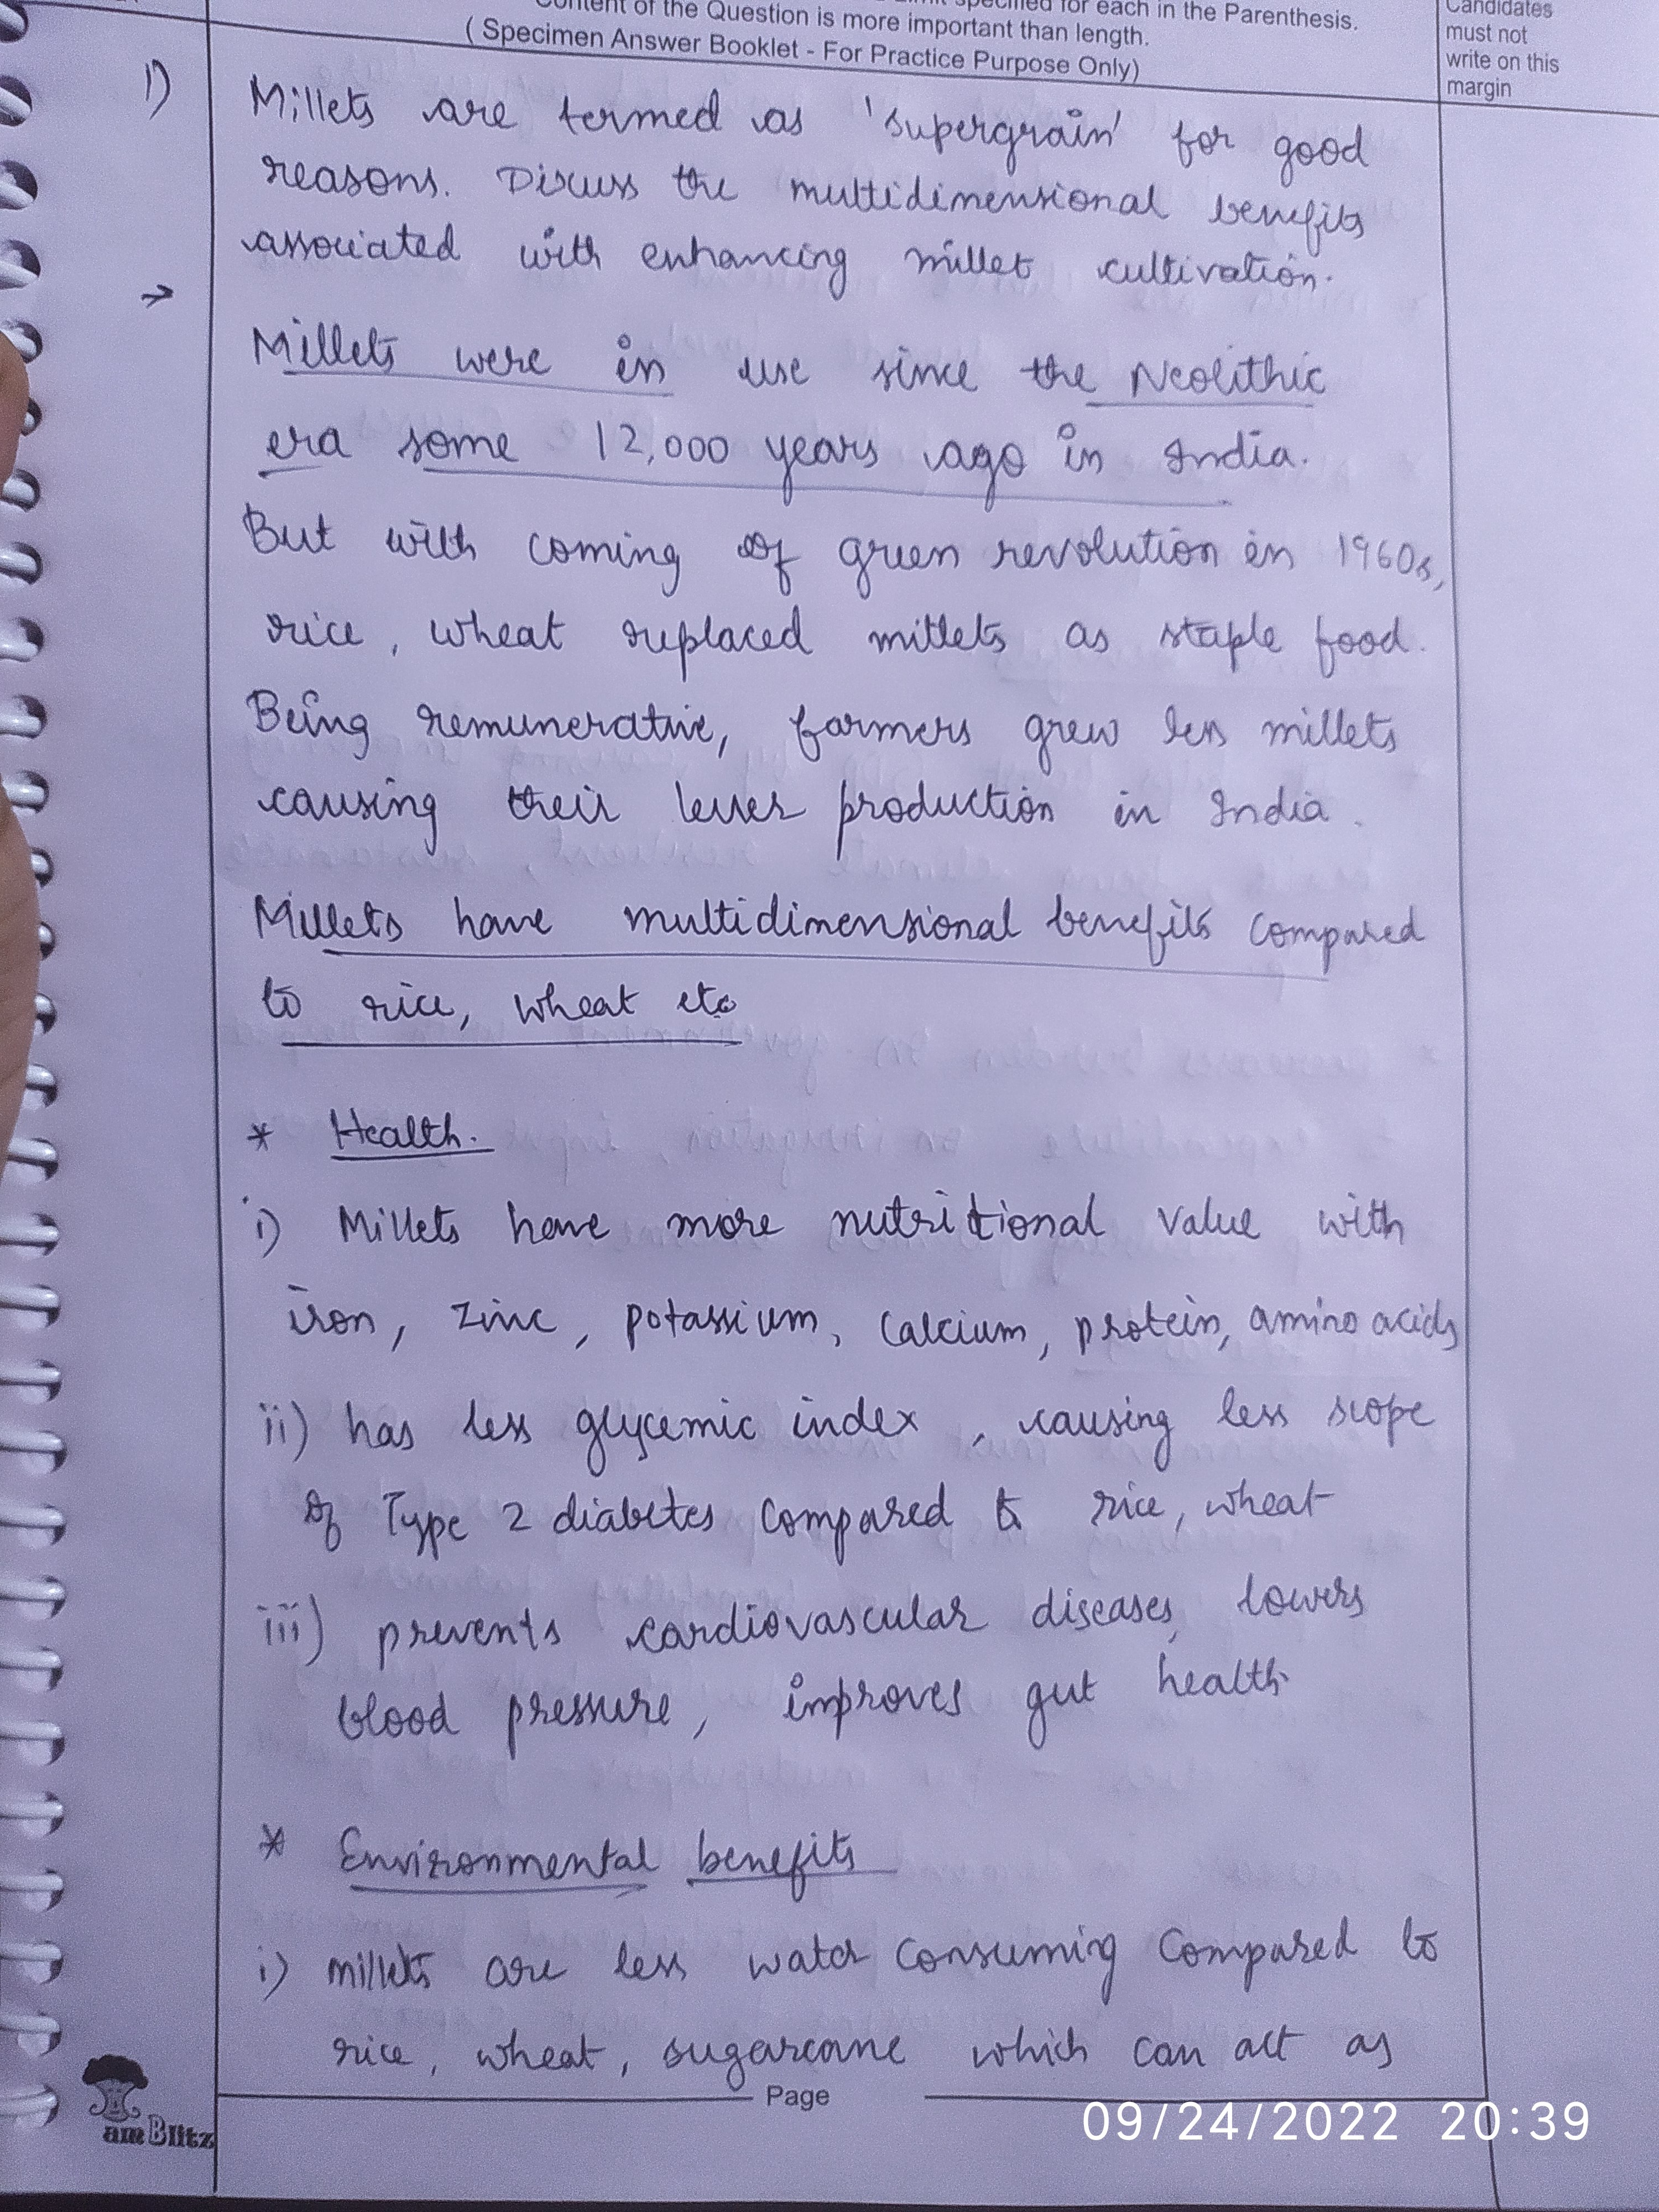 specified for each in the Parenthesis.
Content of the Question is more important than length.
( Specimen Answer Booklet - For Practice Purpose Only)
Candidates
must not
write on this
margin
1)
Millets are termed as 'supergrain' for good
reasons. Discuss the multidimensional benefits
associated with enhancing millet cultivation.
→
Millets were in use since the Neolithic
era some 12,000 years ago in India.
But with coming of green revolution in 1960s,
rice, wheat replaced millets as staple food.
Being remunerative, farmers grew less millets
causing their lesser production in India.
Millets have multidimensional benefits compared
to rice, wheat etc
* Health.
i) Millets have more nutritional value with
iron, zinc, potassium, calcium, protein, amino acids
ii) has less glycemic index, causing less scope
of Type 2 diabetes compared to rice, wheat
iii) prevents cardiovascular diseases, lowers
blood pressure, improves gut health
* Environmental benefits
i) millets are less water consuming compared to
rice, wheat, sugarcane which can act as
Page
am Blitz
09/24/2022 20:39